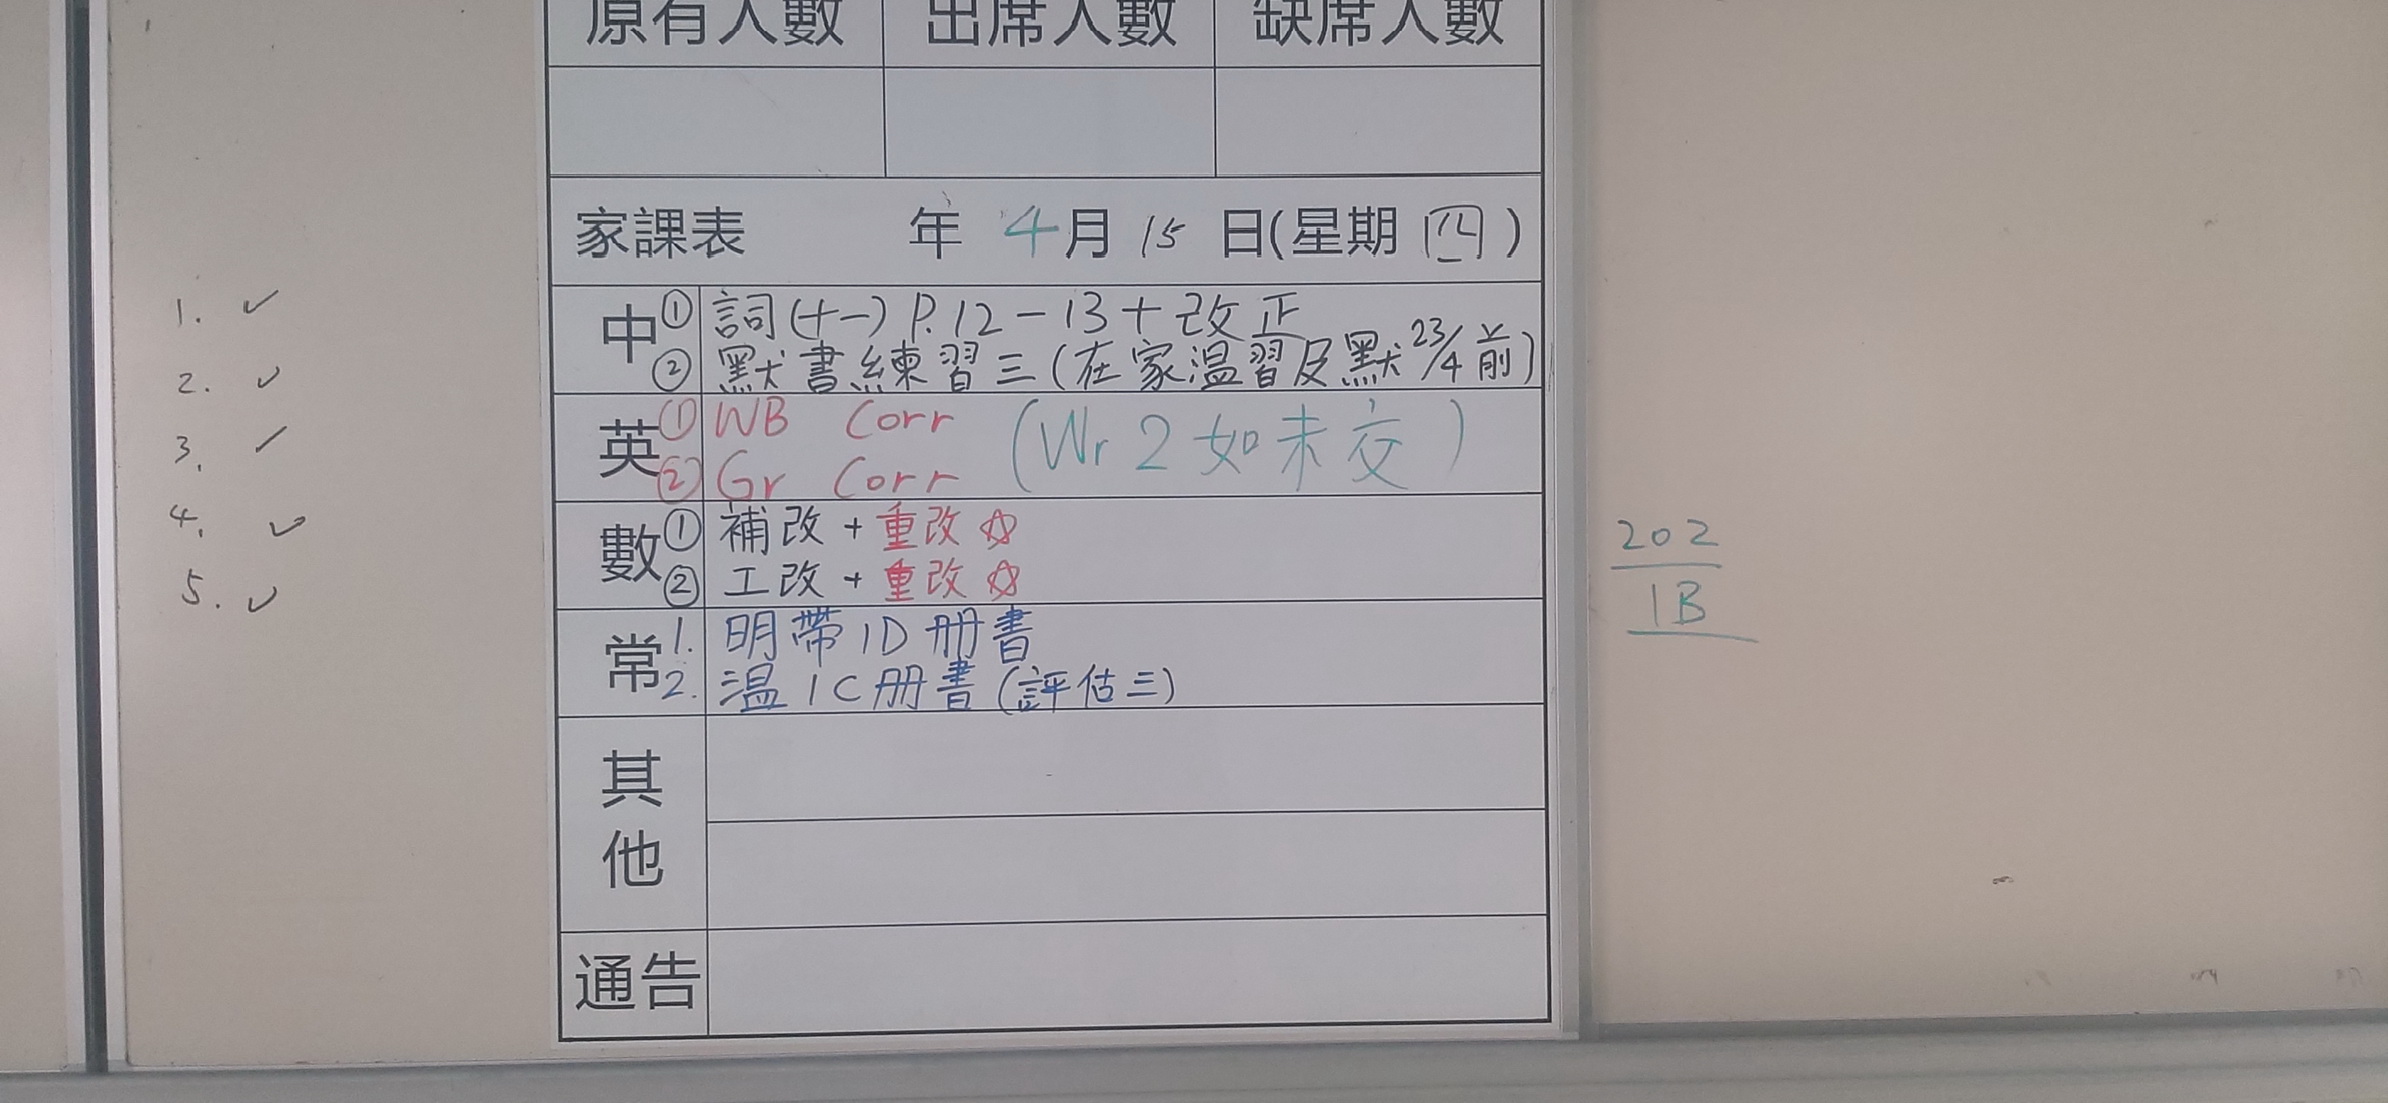 原有人數 出席人數 缺席人數
家課表 年 4月 15 日(星期 四)
中 ① 詞(十一) P.12-13+改正
② 默書練習三(在家温習及默23/4前)
英 ① WB Corr (Wr 2 如未交)
② Gr Corr
數 ① 補改 + 重改 ☆
② 工改 + 重改 ☆
常 1. 明帶1D册書
2. 温1C册書(評估三)
其他
通告
1. ✓
2. ✓
3. ✓
4. ✓
5. ✓
202
1B